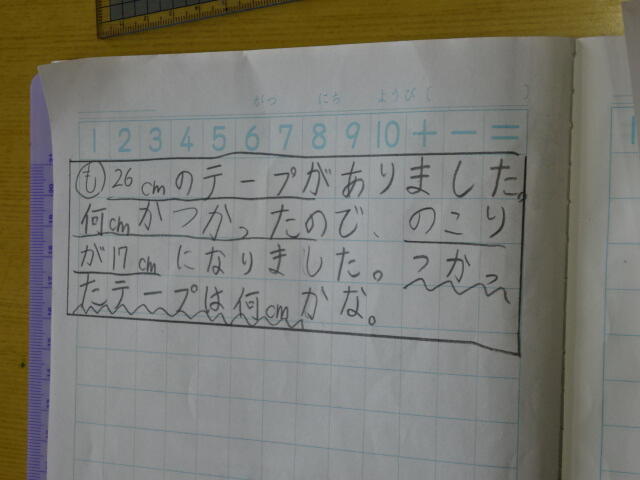 がつ にち ようび〔 〕
1 2 3 4 5 6 7 8 9 10 + − =
も 26cmのテープがありました。
何cmかつかったので、のこり
が17cmになりました。つかっ
たテープは何cmかな。